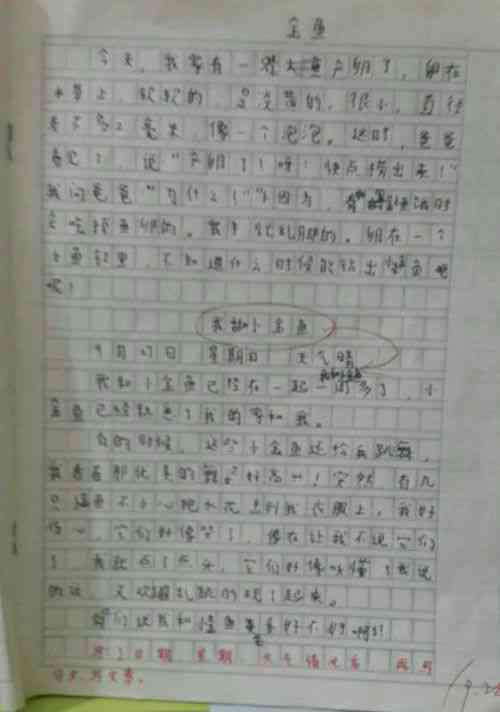 金鱼
今天，我家有一条大鱼产卵了，卵在
水草上，软软的，是交错的，很小，直径
差不多2毫米，像一个泡泡。这时，爸爸
看见了，说“产卵了！呀！快点捞出来！”
我问爸爸“为什么！”“因为，有的鱼
它吃掉鱼卵的。我手忙乱脚的。卵在一个
小鱼缸里，不知道什么时候能钻出鱼呢
呢！
我和小金鱼
9月27日 星期日 天气晴
我和小金鱼已经在一起一周多了，小
金鱼已经熟悉了我的家和我。
有的时候，这些小金鱼还给我跳舞，
我看着那优美的舞，好高兴！突然，有几
只 鱼不小心把水花 到我衣服上，我好
伤心，它们好像哭了，像在让我不说它们
了，我就点了点头，它们好像听懂了我说
的话，又欢蹦乱跳的 了起来。
你们说我和 鱼 好不好啊？
日期 星期 天气
9.28